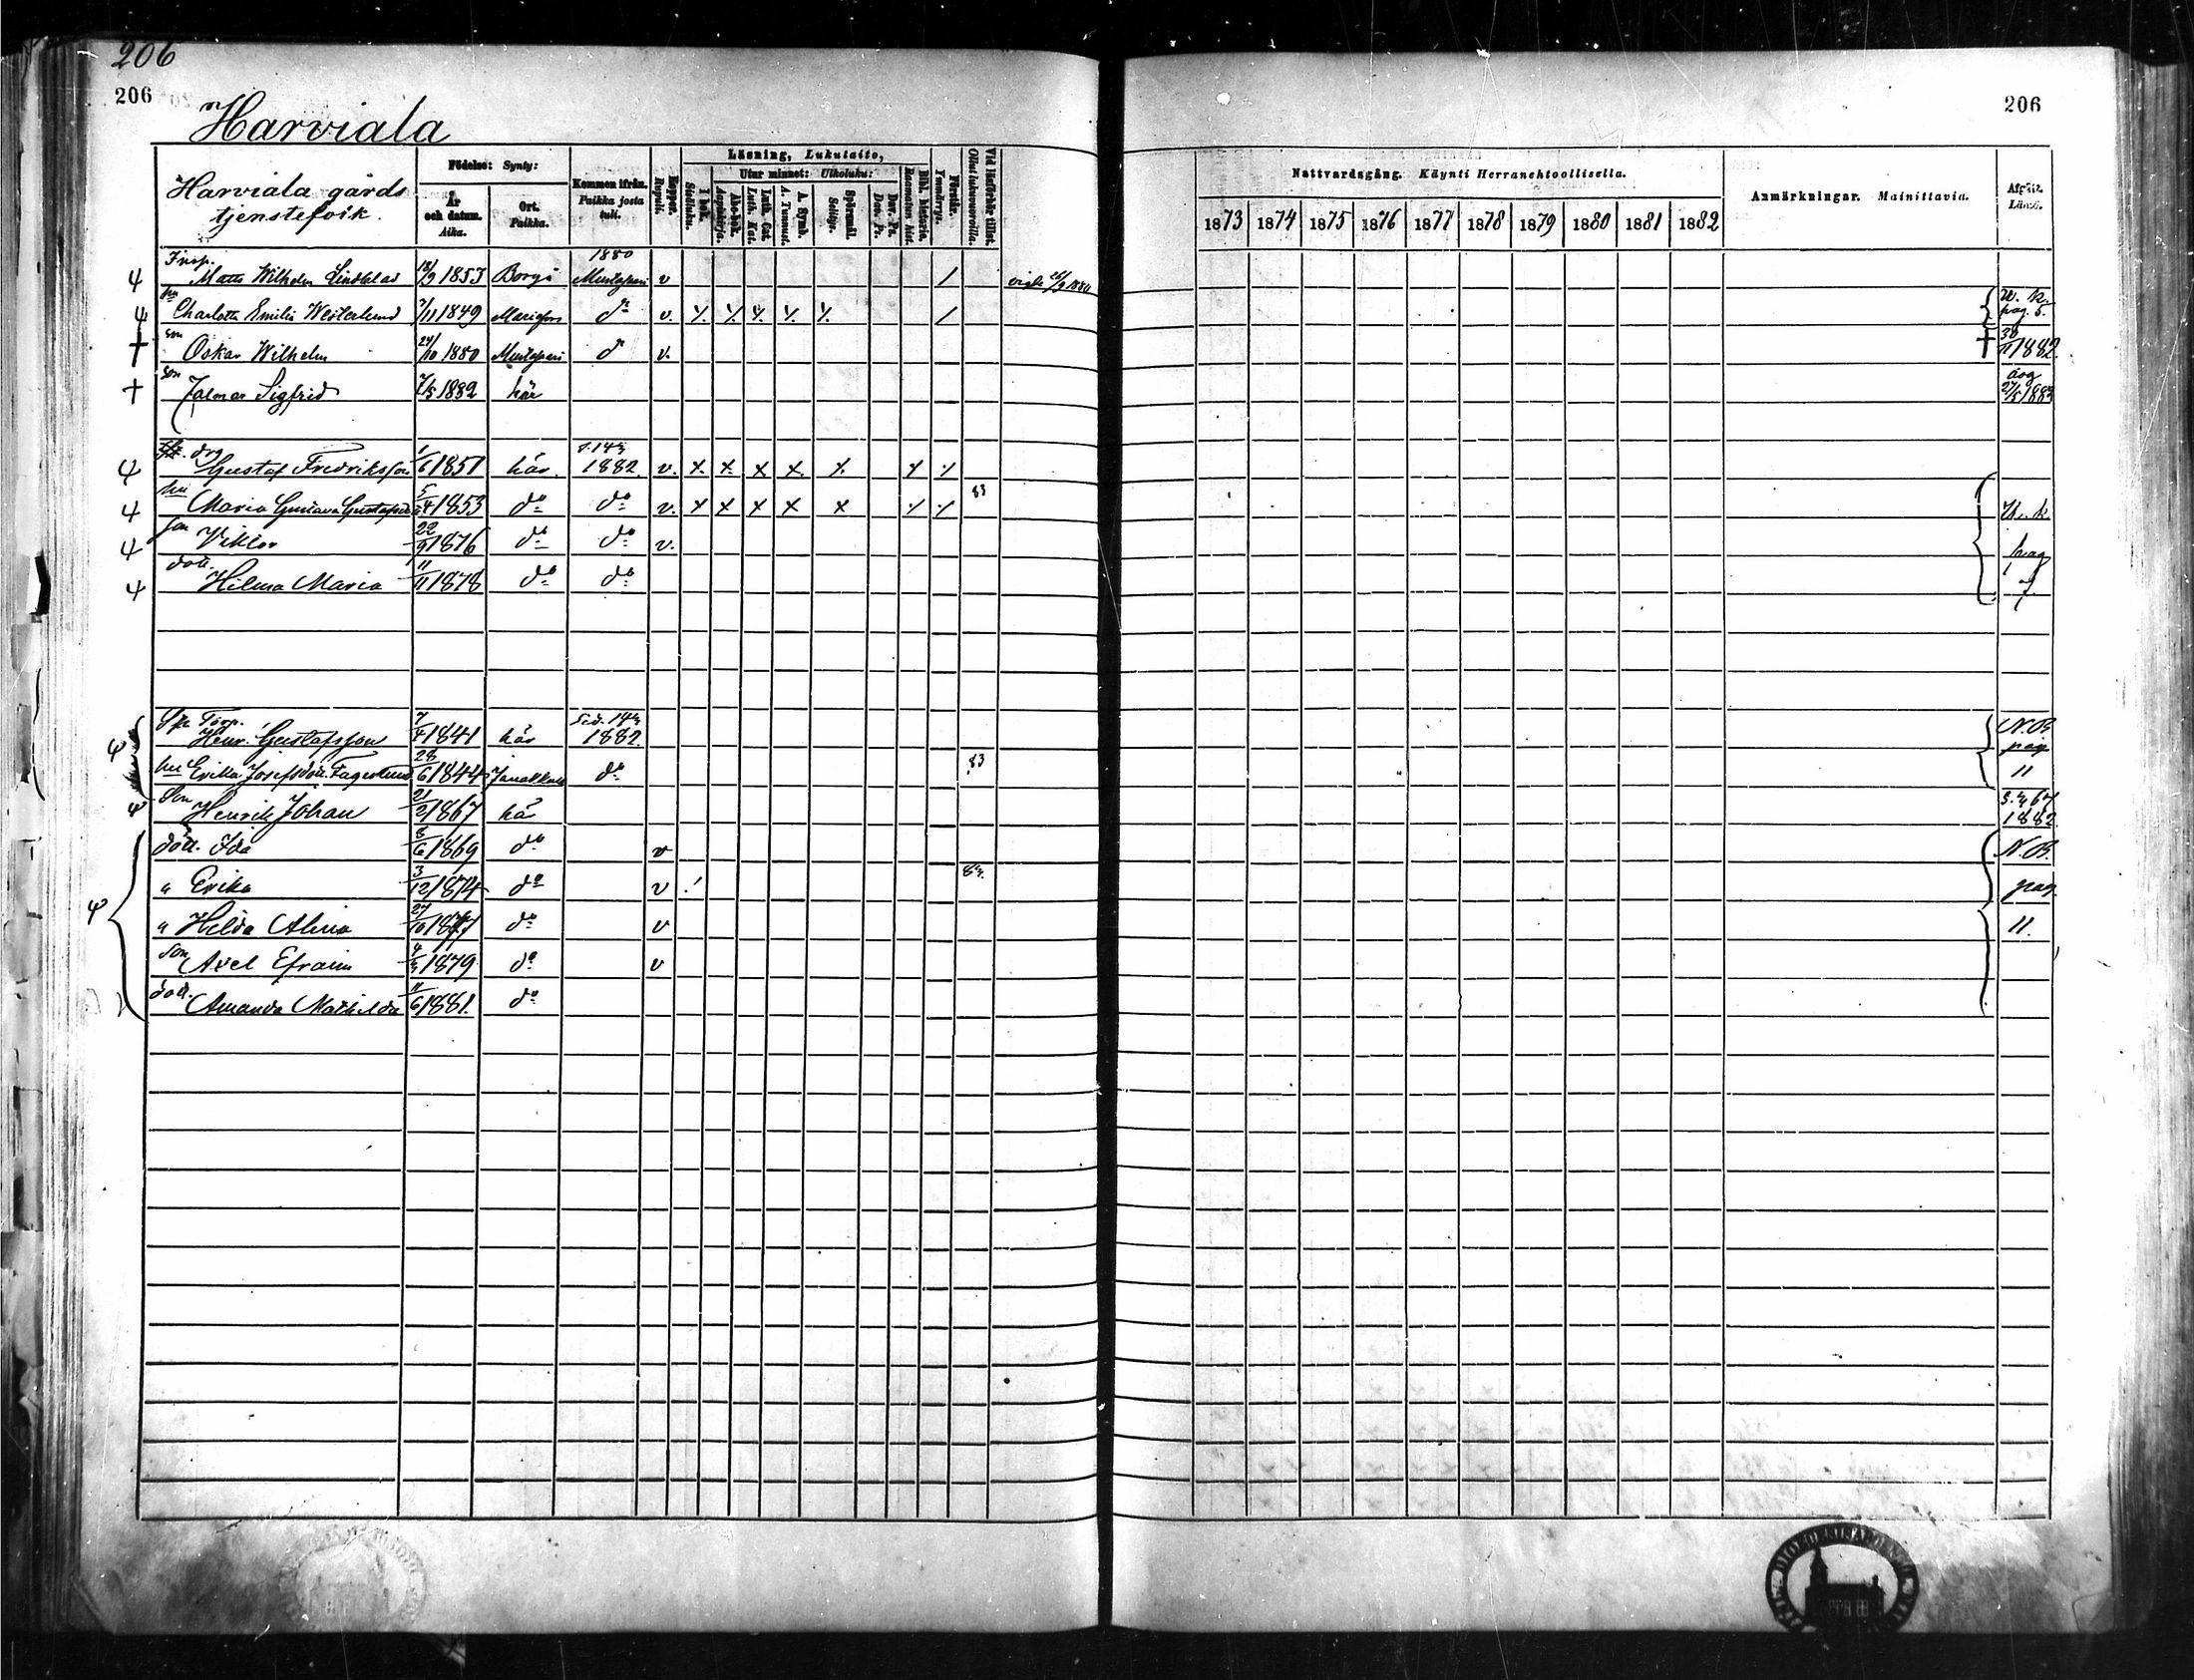 206
206
206
Harviala
Harviala gårds
tjenstefolk.
Födelse: Synty:
År
och datum.
Aika.
Ort.
Paikka.
Kommen ifrån.
Paikka josta
tuli.
Koppor.
Rupuli.
Läsning, Lukutaito,
Utur minnet: Ulkoluku:
I bok.
Sisäluku.
Abc-bok.
Aapiskirja.
Luth. Cat.
Luth. Kat.
A. Symb.
A. Tunnust.
Spörsmål.
Selitys.
Dav. Ps.
Dav. Ps.
Bibl. historia.
Raamatun hist.
Förstår.
Ymmärrys.
Vid läsförhör tillst.
Ollut lukuvuoroilla.
Nattvardsgång. Käynti Herranehtoollisella.
1873 1874 1875 1876 1877 1878 1879 1880 1881 1882
Anmärkningar. Mainittavia.
Afgått.
Lähtö.
Insp. 1880
Matts Wilhelm Lindblad 18/9 1853 Borgå v / vigde 26/9 1880
hu Charlotta Emilia Westerlund 7/11 1849 do v. /
pag. 5.
son Oskar Wilhelm 24/10 1880 do v. 30/11 1882
son Jalmar Sigfrid 7/5 1882 här 27/5 1883
drg s. 143
Gustaf Fredriksson 1/6 1851 här 1882 v. x x x x x
hu Maria Gustava 5/4 1853 do do v. x x x x x 83
son Viktor 22/9 1876 do do v. pag
dott. Hilma Maria 11/11 1878 do do 7
Torp. sid. 143
Henr. Gustafsson 7/4 1841 här 1882 N.B.
hu Erika Josefsdott. Fagerlund 28/6 1844 Janakkala do 83 pag 11
Son Henrik Johan 21/2 1867 här 1882
dott. Ida 8/6 1869 do v N.B.
" Erika 3/12 1874 do v pag
" Hilda Alina 27/10 1877 do v 11.
son Axel Efraim 1879 do v
dott. Amanda Mathilda 11/6 1881. do